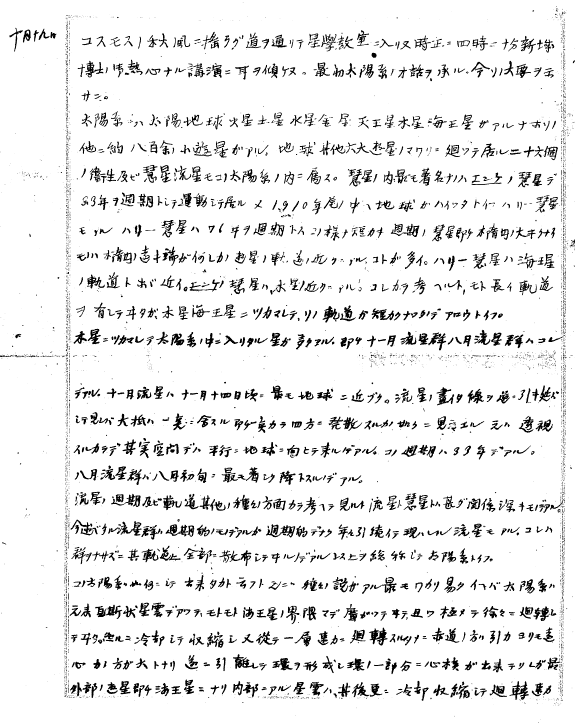 十月十九日
コスモスノ秋風ニ揺ラグ道ヲ通リテ星學教室ニ入リ時正ニ四時ニ十分新城
博士ノ熱心ナル講演ニ耳ヲ傾ケヌ。最初太陽系ノオ話ヲ承ル、今ソノ大要ヲ云
サニ。
太陽系ニハ太陽地球火星土星水星金星天王星木星海王星ガアルナホソノ
他ニ約八百余ノ小遊星ガアル。地球其他六大遊星ノマワリニ廻ツテ居ル二十六個
ノ衛生及ビ彗星流星モコノ太陽系ノ内ニ属ス。彗星ノ内最モ著名ナノハエンケノ彗星デ
3.3年ヲ週期トシテ運動シテ居ル又1910年尾ノ中ヘ地球ガハイツタトイフハリー彗星
モアルハリー彗星ハ76年ヲ週期トスコノ様ナ短カキ週期ノ彗星即チ楕円ノ大キナキ
モノハ楕円ノ一端ガ何レカノ遊星ノ軌道ノ近クニアルコトガ多イ。ハリー彗星ハ海王星
ノ軌道ト出ガ近イ。エンケノ彗星ハ木星ノ近クニアル。コレカラ考ヘルト、モト長イ軌道
ヲ有シテヰタガ木星海王星ニツカマレテ、ソノ軌道ガ短カクナツタデアロウトイフ。
木星ニツカマレテ太陽系ノ中ニ入リタル星ガ多クアル、即チ十一月流星群八月流星群ハコレ
デアル。十一月流星ハ十一月十四日頃ニ最モ地球ニ近ヅク。流星ノ畫ク線ヲ逆ニ引キ延バ
シテ見レバ大抵ハ一点ニ會スル即チ一点カラ四方ニ発散スルカノ如クニ見エル元ハ透視
スルカラデ其実空間デハ平行ニ地球ニ向ヒテ来ルノデアル。コノ週期ハ33年デアル。
八月流星群ハ八月初旬ニ最モ著シク降下スルノデアル。
流星ノ週期及ビ軌道其他ノ種々ノ方面カラ考ヘテ見ルト流星ト彗星トハ甚ダ関係深キモノデアル
今述ベタル流星群ハ週期的ノモノデアルガ週期的デナク年々引續イテ現ハレル流星モアル。コレハ
群ヲナサズニ其軌道上全部ニ散布シテヰルノデアル以上ヲ総称シテ太陽系トイフ。
コノ太陽系ハ如何ニシテ出来タカト云フトコレニハ種々ノ説ガアル最モワカリ易クイヘバ太陽系ハ
元來瓦斯狀星雲デアツテ、モトモト海王星ノ界限マデ廣ガツテヰテ、且ツ極メテ徐々ニ廻轉シ
テヰタ。然ルニ冷却シテ収縮シ又従テ一層速カニ廻轉スルタメニ赤道ノ方ハ引力ヨリモ遠
心力ノ方ガ大トナリ遂ニ引離レテ環ヲ形成シ環ノ一部分ニ心核ガ出来テソレガ最
外部ノ遊星即チ海王星ニナリ内部ニアル星雲ハ、其後更ニ冷却収縮シテ廻轉速カ